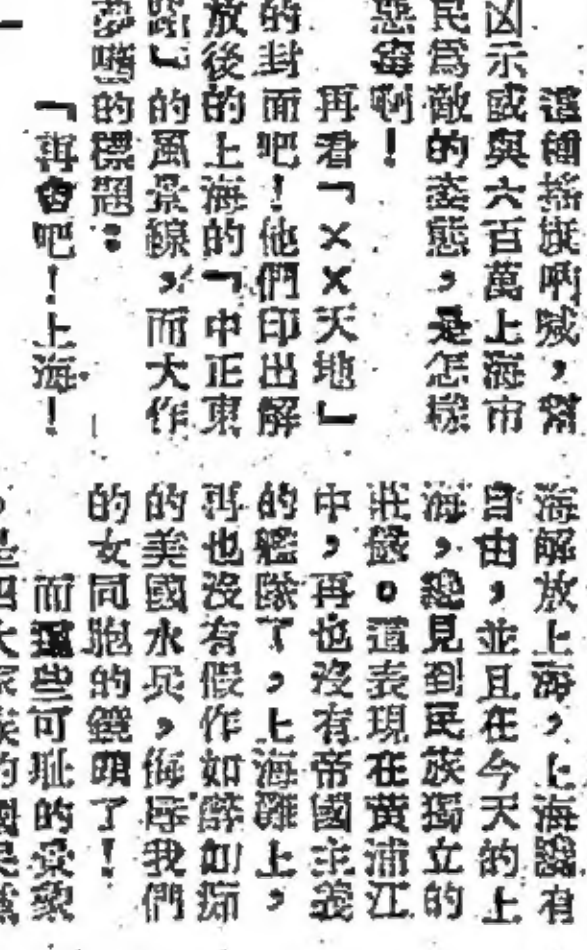 這種搖旗吶喊,幫
凶示威與六百萬上海市
民爲敵的姿態,是怎樣
惡毒啊!
再看「××天地」
的封面吧!他們印出解
放後的上海的「中正東
路」的風景線,而大作
夢囈的標題:
「再會吧!上海!
海解放上海,上海纔有
自由,並且在今天的上
海,纔見到民族獨立的
壯嚴。這表現在黃浦江
中,再也沒有帝國主義
的艦隊了,上海灘上,
再也沒有假作如醉如痴
的美國水兵,侮辱我們
的女同胞的鏡頭了!
而這些可恥的景象
是四大家族的國民黨